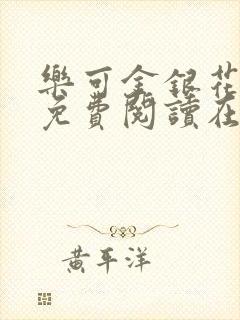 樂可金銀花
免費閱讀在
黃平洋